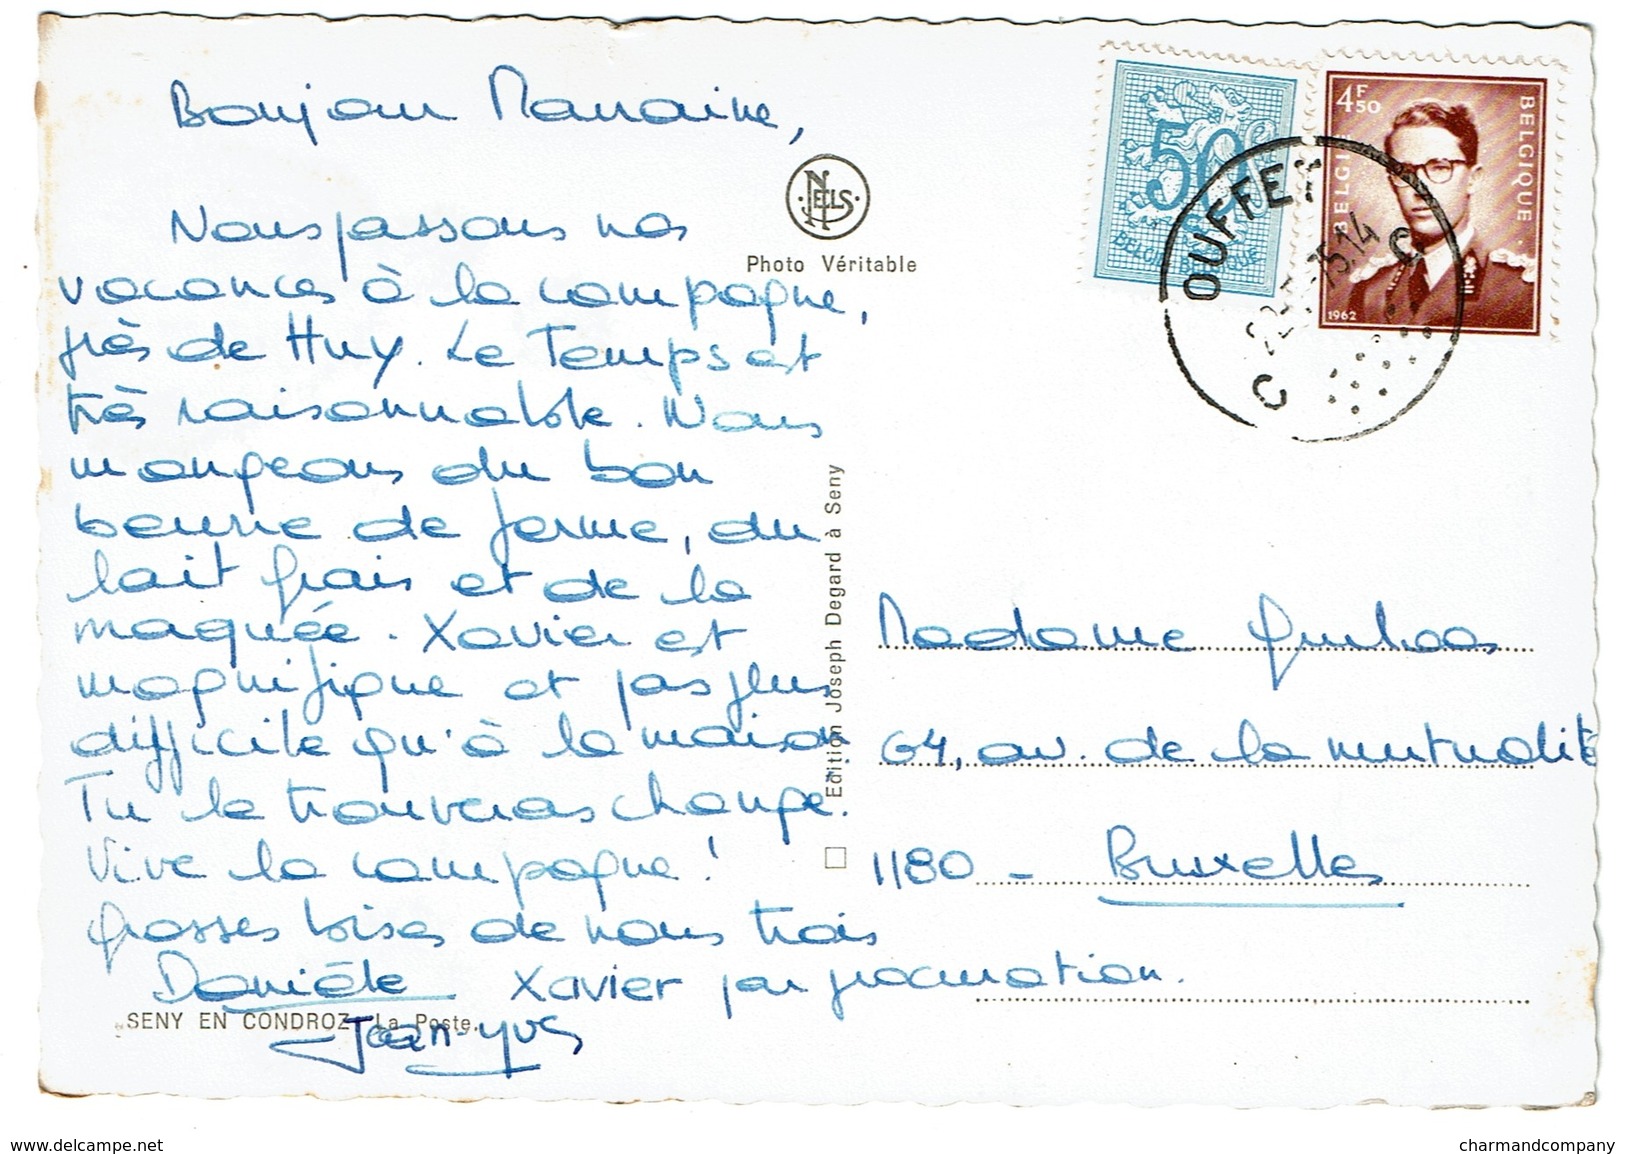 Bonjour Marraine,
Nous passons nos
vacances à la campagne,
près de Huy. Le Temps est
très raisonnable. Nous
mangeons du bon
beurre de ferme, du
lait frais et de la
maquée. Xavier est
magnifique et pas plus
difficile qu'à la maison
Tu le trouveras changé.
Vive la campagne!
grosses bises de nous trois
Danièle Xavier par procuration.
Jean-Yves
SENY EN CONDROZ. La Poste.
NELS
Photo Véritable
Edition Joseph Degard à Seny
50c
BELGIE BELGIQUE
4F50
BELGIE BELGIQUE
1962
OUFFET
C C
Madame
64, av. de la mutualité
1180 - Bruxelles
www.delcampe.net
charmandcompany